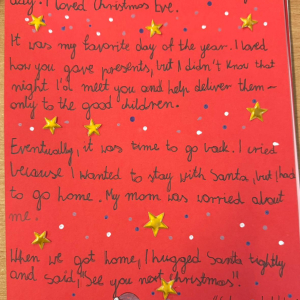 day. I loved Christmas Eve.
It was my favorite day of the year. I loved
how you gave presents, but I didn't know that
night I'd meet you and help deliver them –
only to the good children.
Eventually, it was time to go back. I cried
because I wanted to stay with Santa, but I had
to go home. My mom was worried about
me.
When we got home, I hugged Santa tightly
and said, "See you next Christmas".